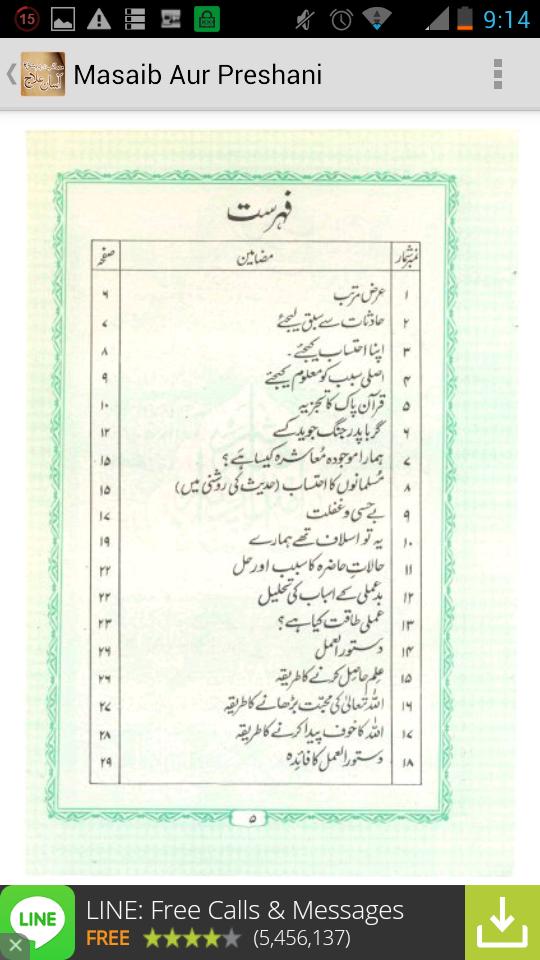 15
9:14
Masaib Aur Preshani
فہرست
نمبر شمار مضامین صفحہ
۱ عرض مرتب ۶
۲ حادثات سے سبق لیجئے ۷
۳ اپنا احتساب کیجئے۔ ۸
۴ اصلی سبب کو معلوم کیجئے ۹
۵ قرآن پاک کا تجزیہ ۱۰
۶ گر با پدر جنگ جوید کسے ۱۲
۷ ہمارا موجودہ معاشرہ کیسا ہے؟ ۱۵
۸ مسلمانوں کا احتساب (حدیث کی روشنی میں) ۱۵
۹ بے حسی و غفلت ۱۷
۱۰ یہ تو اسلاف تھے ہمارے ۱۹
۱۱ حالاتِ حاضرہ کا سبب اور حل ۲۲
۱۲ بدعملی کے اسباب کی تحلیل ۲۲
۱۳ عملی طاقت کیا ہے؟ ۲۳
۱۴ دستور العمل ۲۶
۱۵ علم حاصل کرنے کا طریقہ ۲۶
۱۶ اللہ تعالیٰ کی محبت بڑھانے کا طریقہ ۲۷
۱۷ اللہ کا خوف پیدا کرنے کا طریقہ ۲۸
۱۸ دستور العمل کا فائدہ ۲۹
۵
LINE
LINE: Free Calls & Messages
FREE (5,456,137)